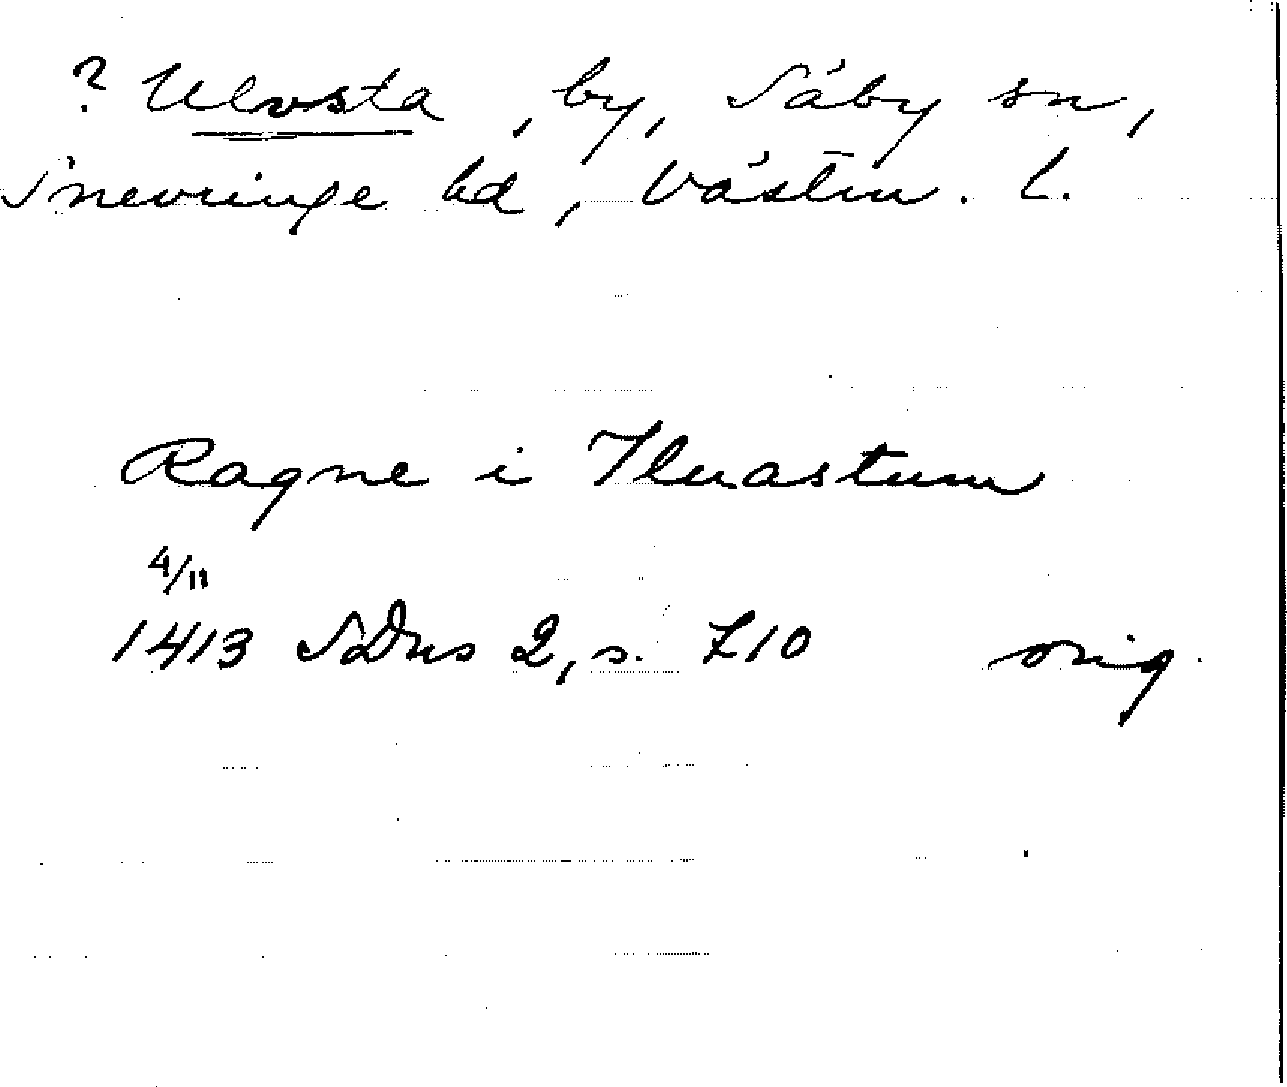 ? Ulvsta, by, Säby sn,
Snevringe hd, Västm. l.
Ragne i Iluastum
4/11
1413 SDns 2, s. 710 orig.